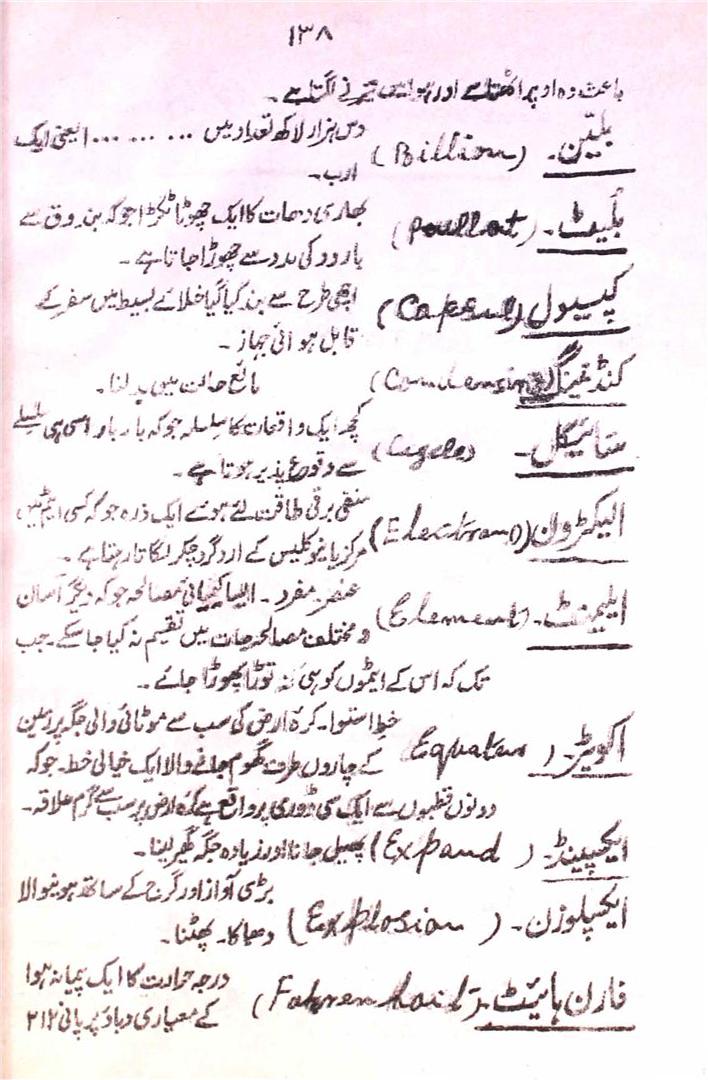 ۱۳۸
باعث وہ اوپر اٹھتا ہے اور ہوا میں تیرنے لگتا ہے۔
بلین۔ (Billion) دس ہزار لاکھ تعداد میں ... ... ... ۱ یعنی ایک
ارب۔
بُلیٹ۔ بھاری دھات کا ایک چھوٹا ٹکڑا جو کہ بندوق سے
بارود کی مدد سے چھوڑا جاتا ہے۔
کیپسول (Capsul) اچھی طرح سے بند کیا گیا خلائے بسیط میں سفر کے
قابل ہوائی جہاز۔
کنڈینسنگ (Condensing) مائع حالت میں بدلنا۔
سائیکل۔ (Cycle) کچھ ایک واقعات کا سلسلہ جو کہ بار بار اسی ہی سلسلے
سے وقوع پذیر ہوتا ہے۔
الیکٹرون (Electron) منفی برقی طاقت لئے ہوئے ایک ذرہ جو کہ کسی ایٹم میں
مرکز یا نیوکلیس کے اردگرد چکر لگاتا رہتا ہے۔
ایلیمنٹ۔ (Element) عنصر مفرد۔ ایسا کیمیائی مصالحہ جو کہ دیگر آسان
و مختلف مصالحہ جات میں تقسیم نہ کیا جا سکے۔ جب
تک کہ اس کے ایٹموں کو ہی نہ توڑا پھوڑا جائے۔
اکویٹر۔ (Equator خطِ استوا۔ کرہ ارض کی سب سے موٹائی والی جگہ پر زمین
کے چاروں طرف گھوم جانے والا ایک خیالی خط۔ جو کہ
دونوں قطبوں سے ایک سی دُوری پر واقع ہے کرہ ارض پر سب سے گرم علاقہ۔
ایکسپینڈ۔ (Expand) پھیل جانا اور زیادہ جگہ گھیر لینا۔
ایکسپلوزن۔ (Explosion) بڑی آواز اور گرج کے ساتھ ہونیوالا
دھماکا۔ پھٹنا۔
فارن ہائیٹ۔ (Fahrenhaid) درجہ حرارت کا ایک پیمانہ ہوا
کے معیاری دباؤ پر پانی ۲۱۲